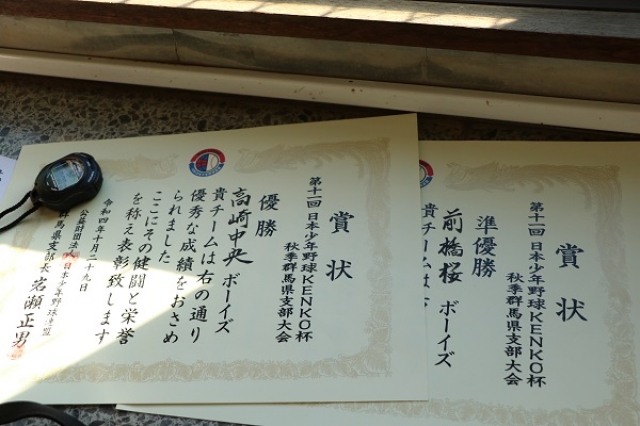 賞状
第十一回 日本少年野球KENKO杯
秋季群馬県支部大会
準優勝
前橋桜 ボーイズ
貴チームは
賞状
第十一回 日本少年野球KENKO杯
秋季群馬県支部大会
優勝
高崎中央 ボーイズ
貴チームは右の通り
優秀な成績をおさめ
られました
ここにその健闘と栄誉
を称え表彰致します
令和四年十月二十九日
公益財団法人日本少年野球連盟
群馬県支部長 岩瀬正男